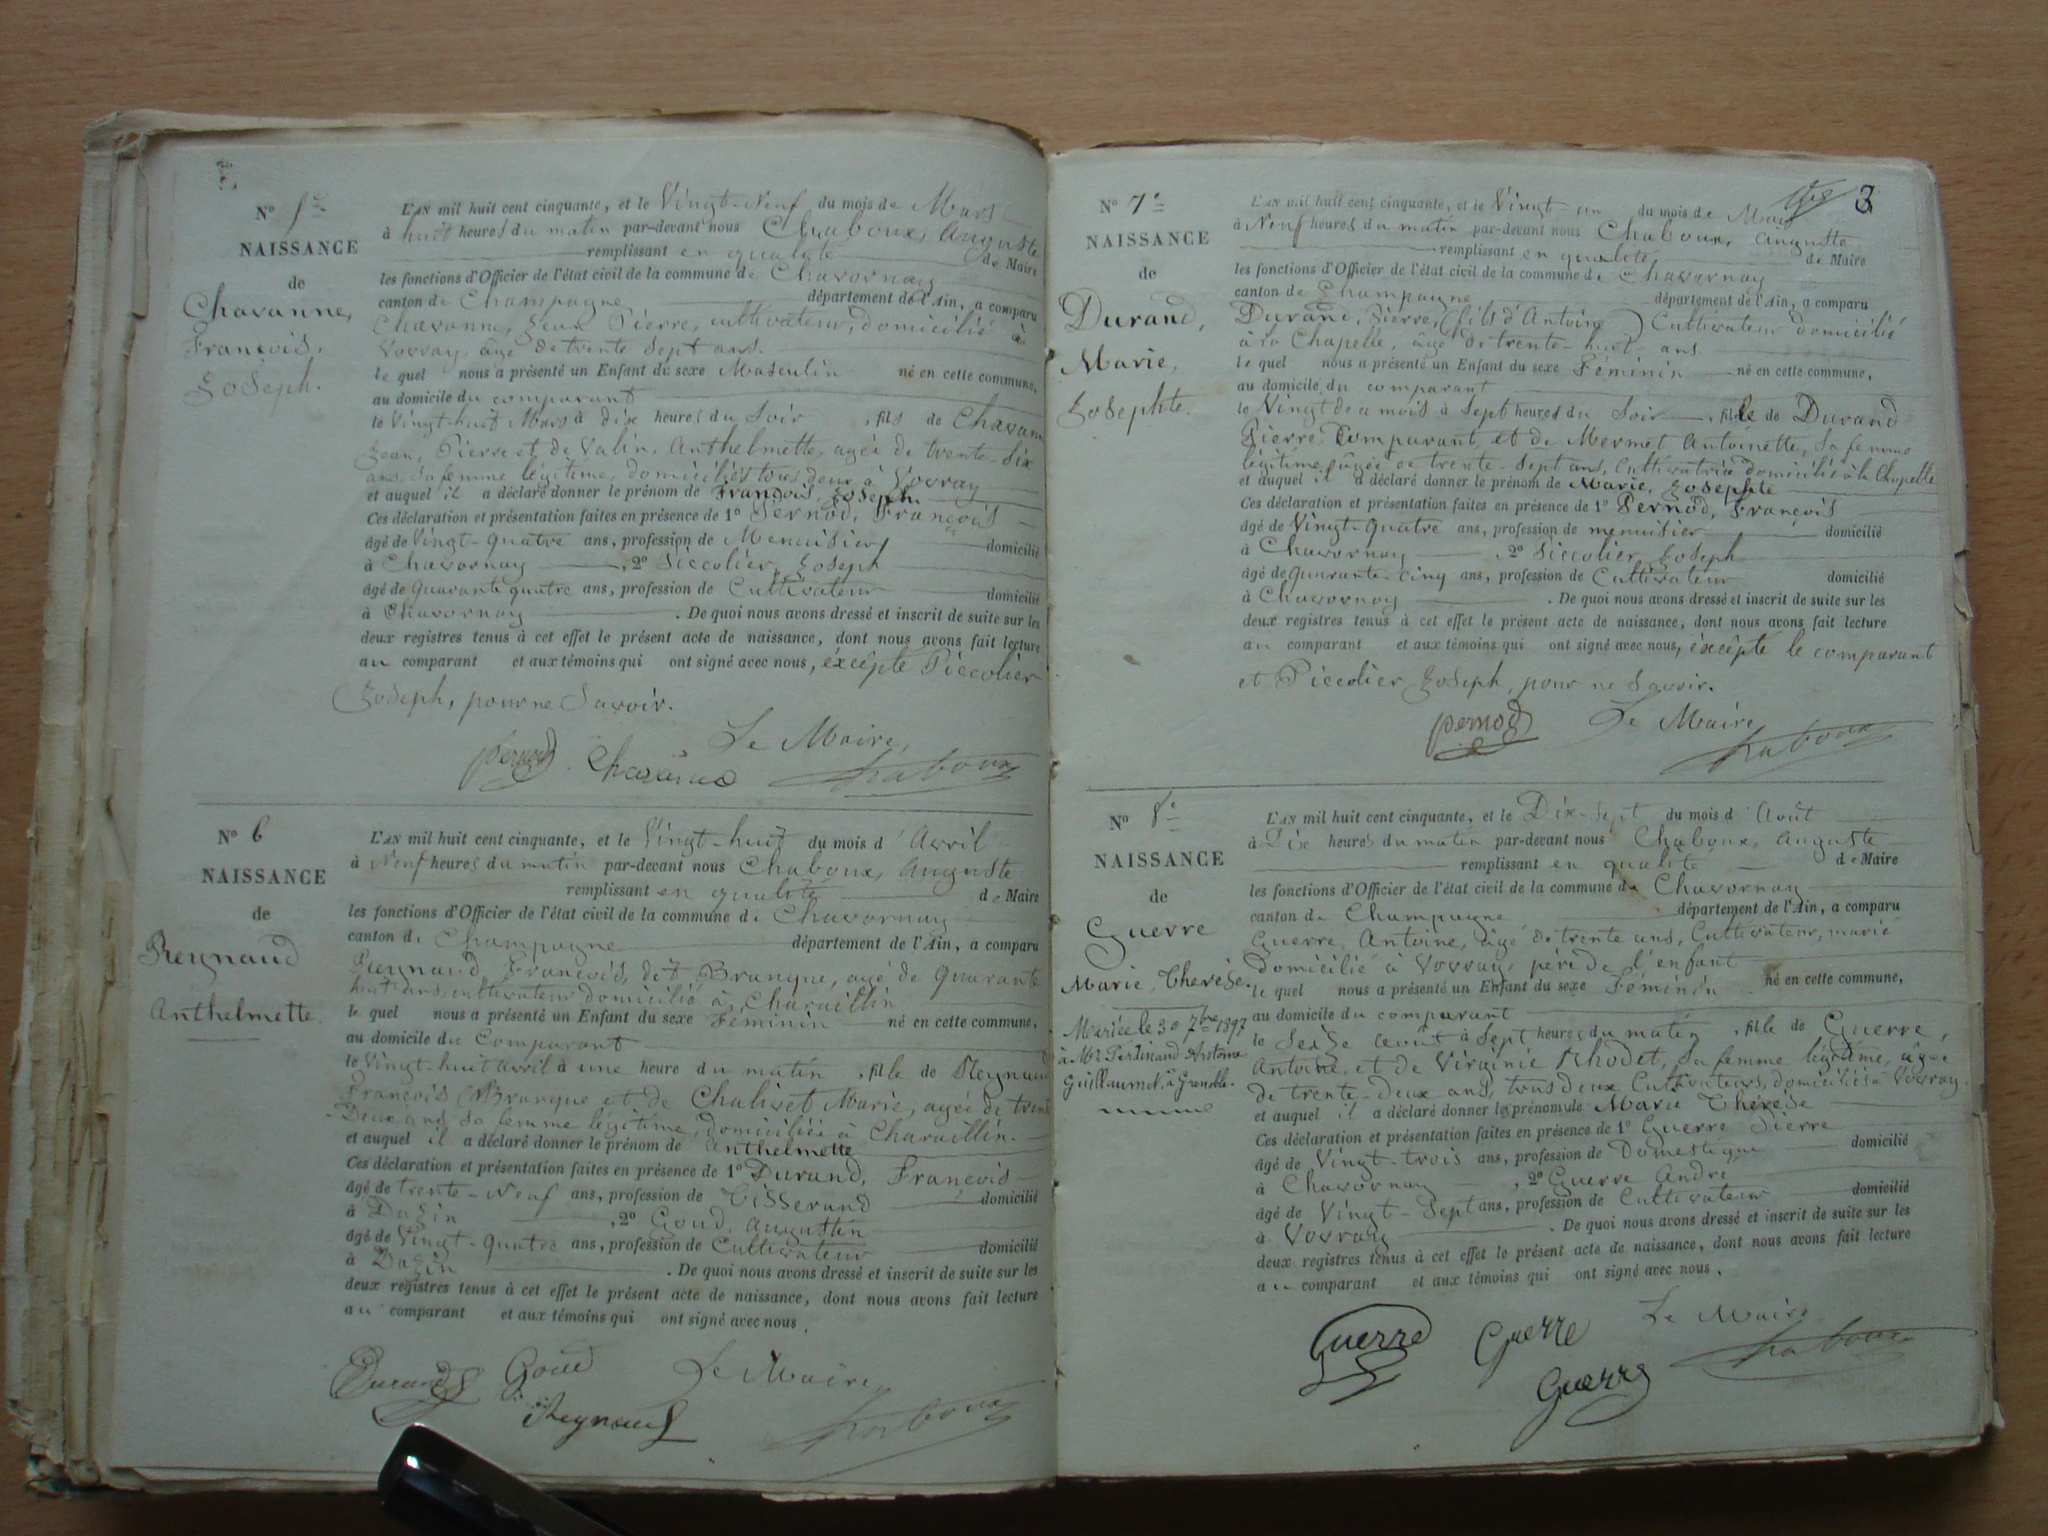 N° 5e
NAISSANCE
de
Chavanne,
François,
Joseph.
L'AN mil huit cent cinquante, et le Vingt-Neuf du mois de Mars
à huit heures du matin par-devant nous Chaboux, Auguste
remplissant en qualité de Maire
les fonctions d'Officier de l'état civil de la commune de Chavornay
canton de Champagne département de l'Ain, a comparu
Chavanne, Jean Pierre, cultivateur, domicilié à
Vovray, âgé de trente sept ans.
le quel nous a présenté un Enfant du sexe Masculin né en cette commune,
au domicile du comparant
le Vingt-huit Mars à dix heures du Soir, fils de Chavanne
Jean, Pierre et de Valin, Anthelmette, agée de trente-six
ans, sa femme légitime, domiciliés tous deux à Vovray
et auquel il a déclaré donner le prénom de François, Joseph.
Ces déclaration et présentation faites en présence de 1° Pernod, François
âgé de Vingt-quatre ans, profession de Menuisier domicilié
à Chavornay, 2° Piccolier, Joseph
âgé de Quarante quatre ans, profession de Cultivateur domicilié
à Chavornay. De quoi nous avons dressé et inscrit de suite sur les
deux registres tenus à cet effet le présent acte de naissance, dont nous avons fait lecture
au comparant et aux témoins qui ont signé avec nous, éxcépté Piccolier
Joseph, pour ne Savoir.
Le Maire,
pernod Chavanne Chaboux
N° 6
NAISSANCE
de
Reynaud
Anthelmette.
L'AN mil huit cent cinquante, et le Vingt-huit du mois d'Avril
à Neuf heures du matin par-devant nous Chaboux, Auguste
remplissant en qualité de Maire
les fonctions d'Officier de l'état civil de la commune de Chavornay
canton de Champagne département de l'Ain, a comparu
Reynaud, François, dit Branque, agé de Quarante
huit ans, cultivateur domicilié à Charaillin
le quel nous a présenté un Enfant du sexe Féminin né en cette commune,
au domicile du Comparant
le Vingt-huit avril à une heure du matin, fille de Reynaud
François Branque et de Chalivet Marie, agée de trente
Deux ans sa femme légitime, domiciliée à Charaillin.
et auquel il a déclaré donner le prénom de Anthelmette
Ces déclaration et présentation faites en présence de 1° Durand, François
âgé de trente-Neuf ans, profession de Tisserand domicilié
à Dazin, 2° Goud, Augustin
âgé de Vingt-quatre ans, profession de Cultivateur domicilié
à Dazin. De quoi nous avons dressé et inscrit de suite sur les
deux registres tenus à cet effet le présent acte de naissance, dont nous avons fait lecture
au comparant et aux témoins qui ont signé avec nous.
Durand Goud Le Maire,
Reynaud Chaboux
3
N° 7e
NAISSANCE
de
Durand,
Marie,
Josephte.
L'AN mil huit cent cinquante, et le Vingt-un du mois de Mai
à Neuf heures du matin par-devant nous Chaboux, Auguste
remplissant en qualité de Maire
les fonctions d'Officier de l'état civil de la commune de Chavornay
canton de Champagne département de l'Ain, a comparu
Durand, Pierre, (fils d'Antoine) Cultivateur domicilié
à la Chapelle, âgé de trente-huit ans
le quel nous a présenté un Enfant du sexe Féminin né en cette commune,
au domicile du comparant
le Vingt de ce mois à Sept heures du Soir, fille de Durand
Pierre Comparant et de Mermet Antoinette, Sa femme
légitime, âgée de trente-sept ans, Cultivatrice domiciliée à la Chapelle
et auquel il a déclaré donner le prénom de Marie, Josephte
Ces déclaration et présentation faites en présence de 1° Pernod, François
âgé de Vingt-Quatre ans, profession de menuisier domicilié
à Chavornay, 2° Piccolier, Joseph
âgé de Quarante-cinq ans, profession de Cultivateur domicilié
à Chavornay. De quoi nous avons dressé et inscrit de suite sur les
deux registres tenus à cet effet le présent acte de naissance, dont nous avons fait lecture
au comparant et aux témoins qui ont signé avec nous, éxcépté le comparant
et Piccolier Joseph, pour ne Savoir.
pernod Le Maire,
Chaboux
N° 8e
NAISSANCE
de
Guerre
Marie, Therèse.
Mariée le 30 7bre 1897
à Mr Ferdinand Antoine
Guillaumot, à Grenoble.
L'AN mil huit cent cinquante, et le Dix-Sept du mois d'Août
à Dix heures du matin par-devant nous Chaboux, Auguste
remplissant en qualité de Maire
les fonctions d'Officier de l'état civil de la commune de Chavornay
canton de Champagne département de l'Ain, a comparu
Guerre, Antoine, âgé de trente ans, Cultivateur, marié
domicilié à Vovray, père de l'enfant
le quel nous a présenté un Enfant du sexe Féminin né en cette commune,
au domicile du comparant
le Seize août à Sept heures du matin, fille de Guerre,
Antoine, et de Virginie Rhodet, sa femme légitime, âgée
de trente-deux ans, tous deux Cultivateurs, domiciliés à Vovray.
et auquel il a déclaré donner le prénom de Marie Thérèse
Ces déclaration et présentation faites en présence de 1° Guerre Pierre
âgé de Vingt-trois ans, profession de Domestique domicilié
à Chavornay, 2° Guerre André
âgé de Vingt-Sept ans, profession de Cultivateur domicilié
à Vovray. De quoi nous avons dressé et inscrit de suite sur les
deux registres tenus à cet effet le présent acte de naissance, dont nous avons fait lecture
au comparant et aux témoins qui ont signé avec nous.
Le Maire
Guerre Guerre Chaboux
Guerre